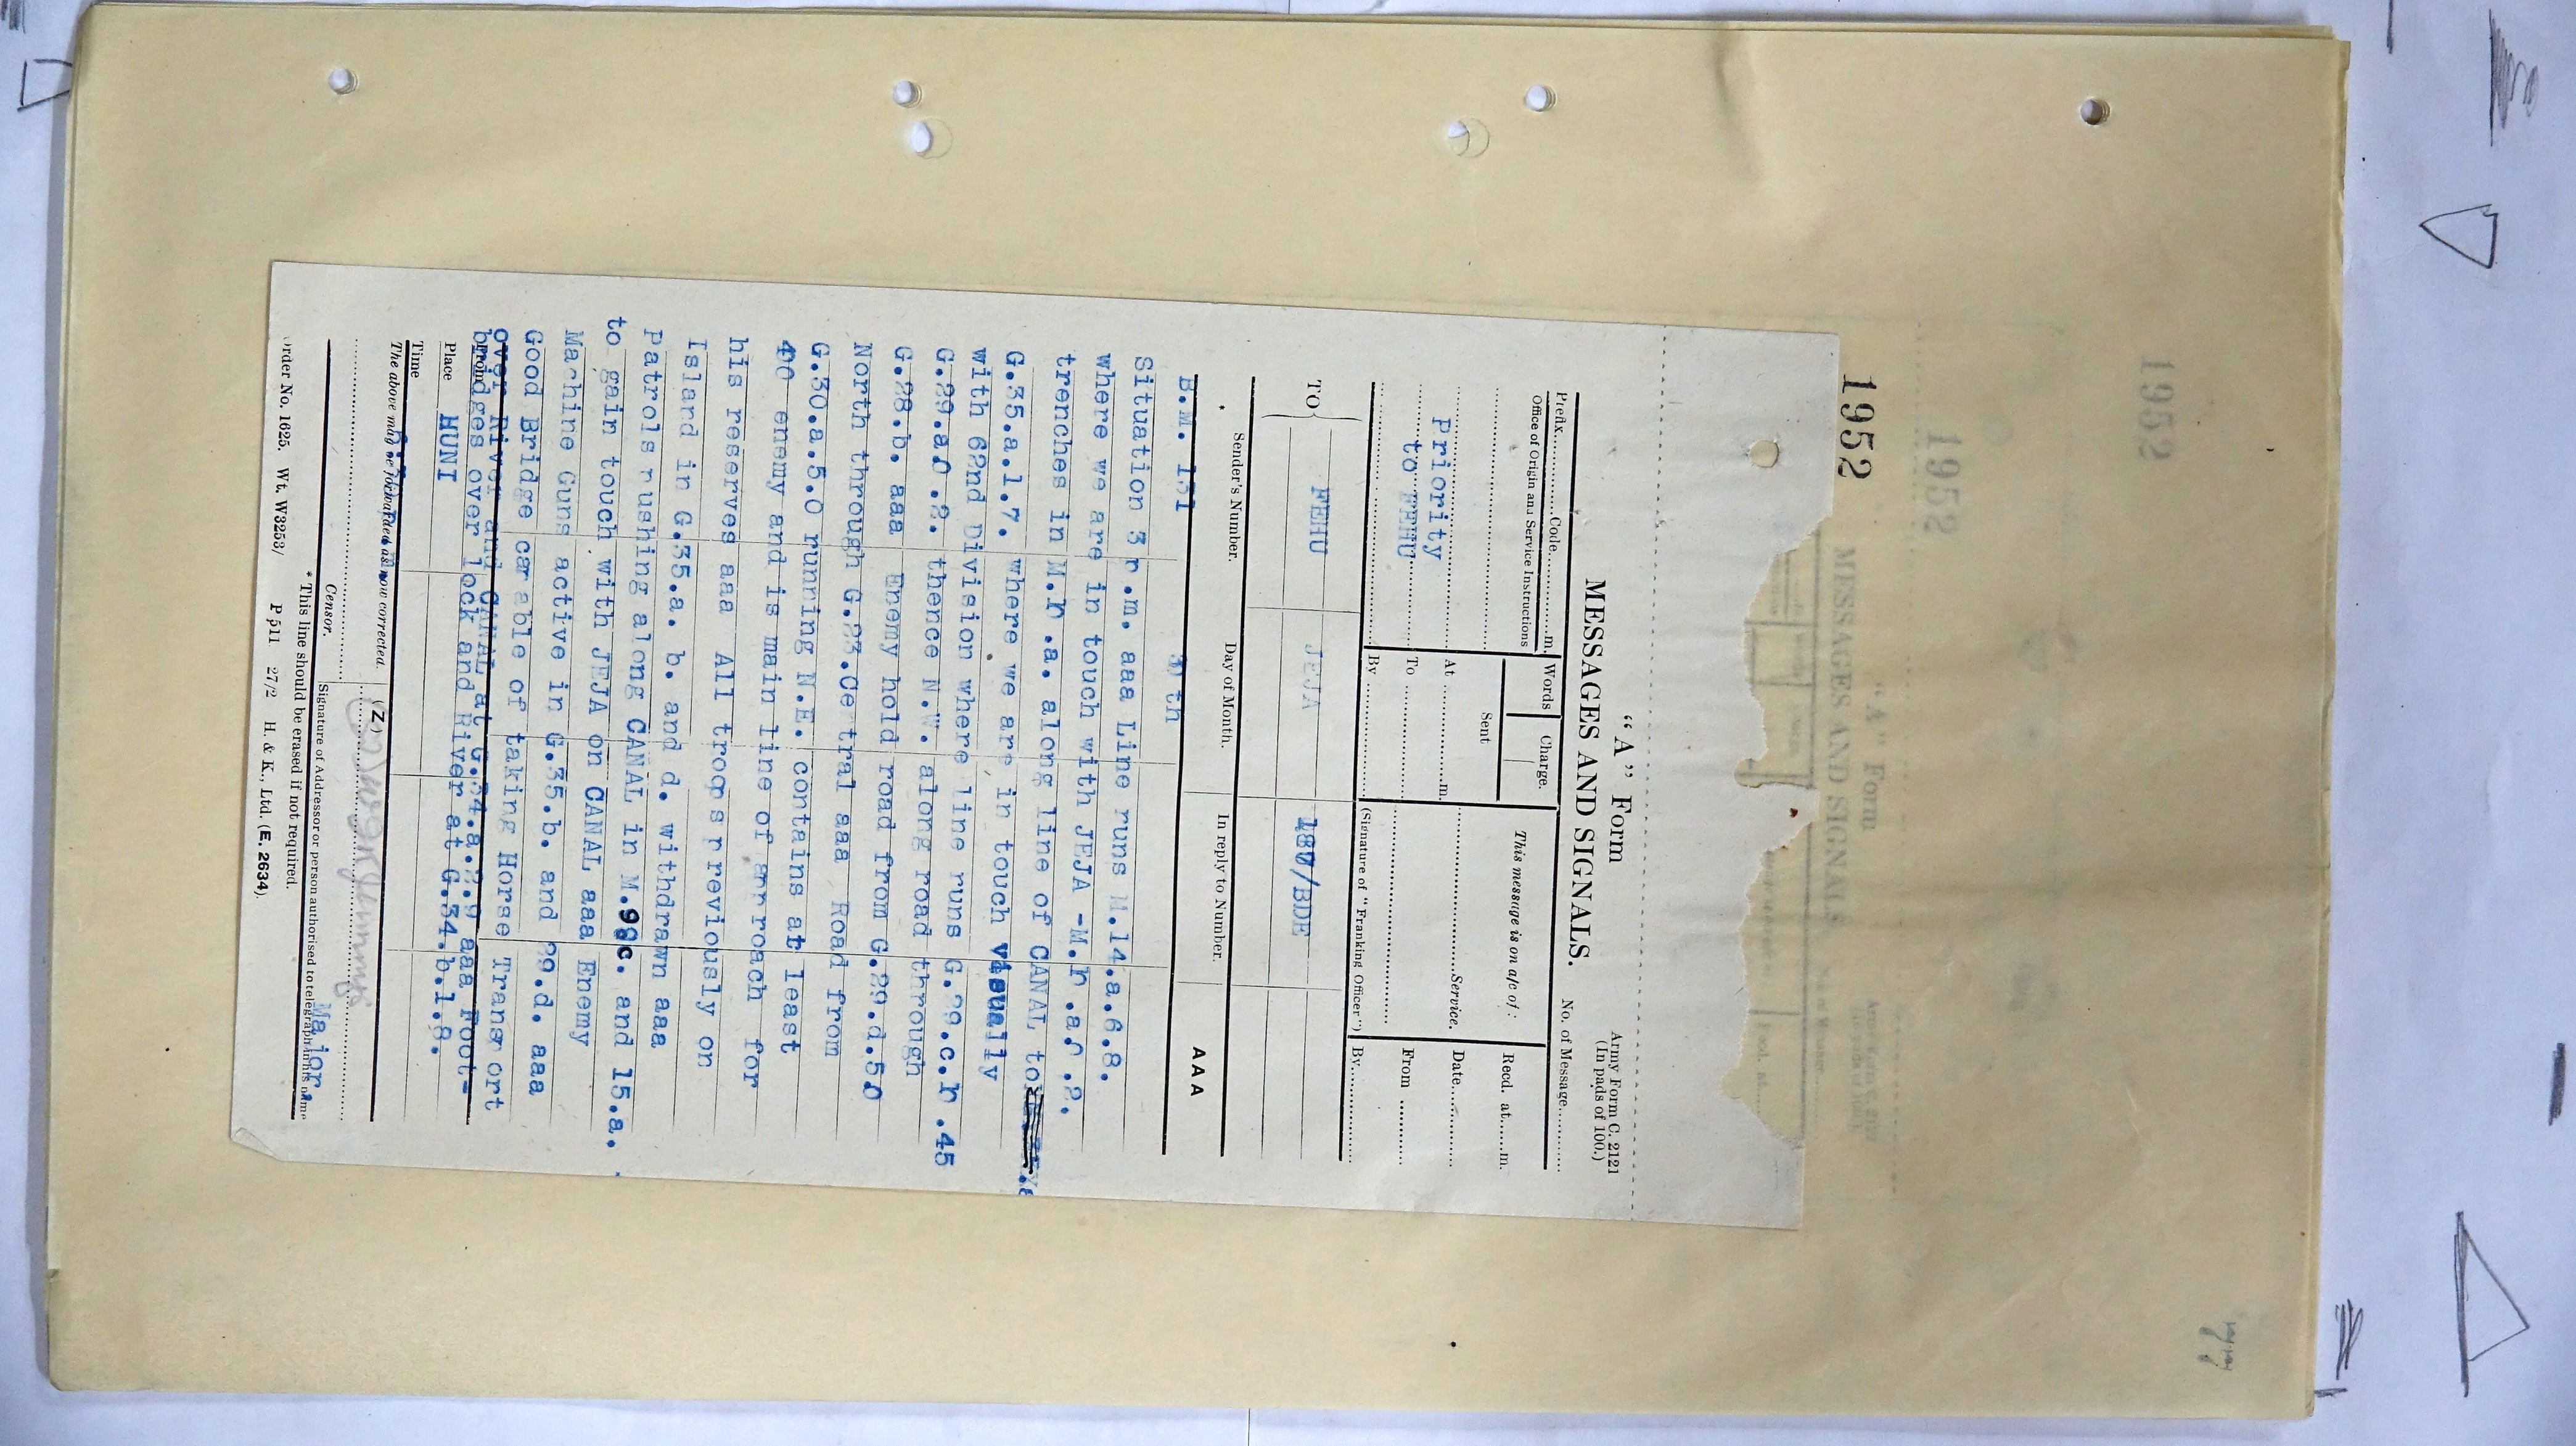 1952
"A" Form
Army Form C. 2121
(In pads of 100.)
MESSAGES AND SIGNALS.
No. of Message
Prefix Code m.
Words
Charge.
This message is on a/c of:
Recd. at m.
Office of Origin and Service Instructions
Sent
Date
Priority
At m.
Service.
From
to FEHU
To
By
(Signature of "Franking Officer")
By
TO
FEHU
JEJA
187/BDE
Sender's Number.
Day of Month.
In reply to Number.
AAA
B.M. 151
30 th
Situation 3 p.m. aaa Line runs M.14.a.6.8.
where we are in touch with JEJA -M.h .a.0 .2.
trenches in M.h .a. along line of CANAL to
G.35.a.1.7. where we are in touch visually
with 62nd Division where line runs G.29.c.h .45
G.29.a.0 .2. thence N.W. along road through
G.28.b. aaa Enemy hold road from G.29.d.50
North through G.23.Ce tral aaa Road from
G.30.a.5.0 running N.E. contains at least
400 enemy and is main line of approach for
his reserves aaa All troops previously on
Island in G.35.a. b. and d. withdrawn aaa
Patrols pushing along CANAL in M. and 15.a.
to gain touch with JEJA on CANAL aaa Enemy
Machine Guns active in G.35.b. and 29.d. aaa
Good Bridge capable of taking Horse Transport
over River and CANAL at G.34.a.2.9 aaa Foot-
bridges over lock and River at G.34.b.1.8.
From
Place
HUNI
Time
The above may be forwarded as now corrected.
(Z)
Censor.
Signature of Addressor or person authorised to telegraph in his name
Major.
* This line should be erased if not required.
Order No. 1625. Wt. W3253/ P 511 27/2 H. & K., Ltd. (E. 2634).